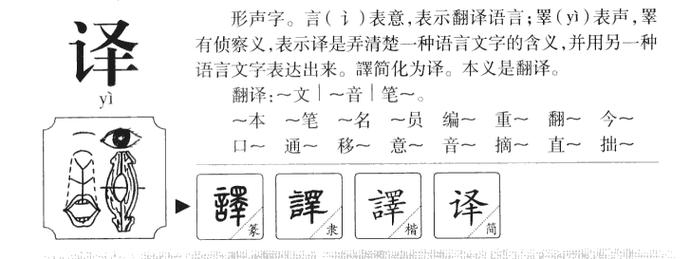 译
yì
形声字。言(讠)表意,表示翻译语言;睪(yì)表声,睪
有侦察义,表示译是弄清楚一种语言文字的含义,并用另一种
语言文字表达出来。譯简化为译。本义是翻译。
翻译:~文|~音|笔~。
~本 ~笔 ~名 ~员 编~ 重~ 翻~ 今~
口~ 通~ 移~ 意~ 音~ 摘~ 直~ 拙~
譯 篆 譯 隶 譯 楷 译 简